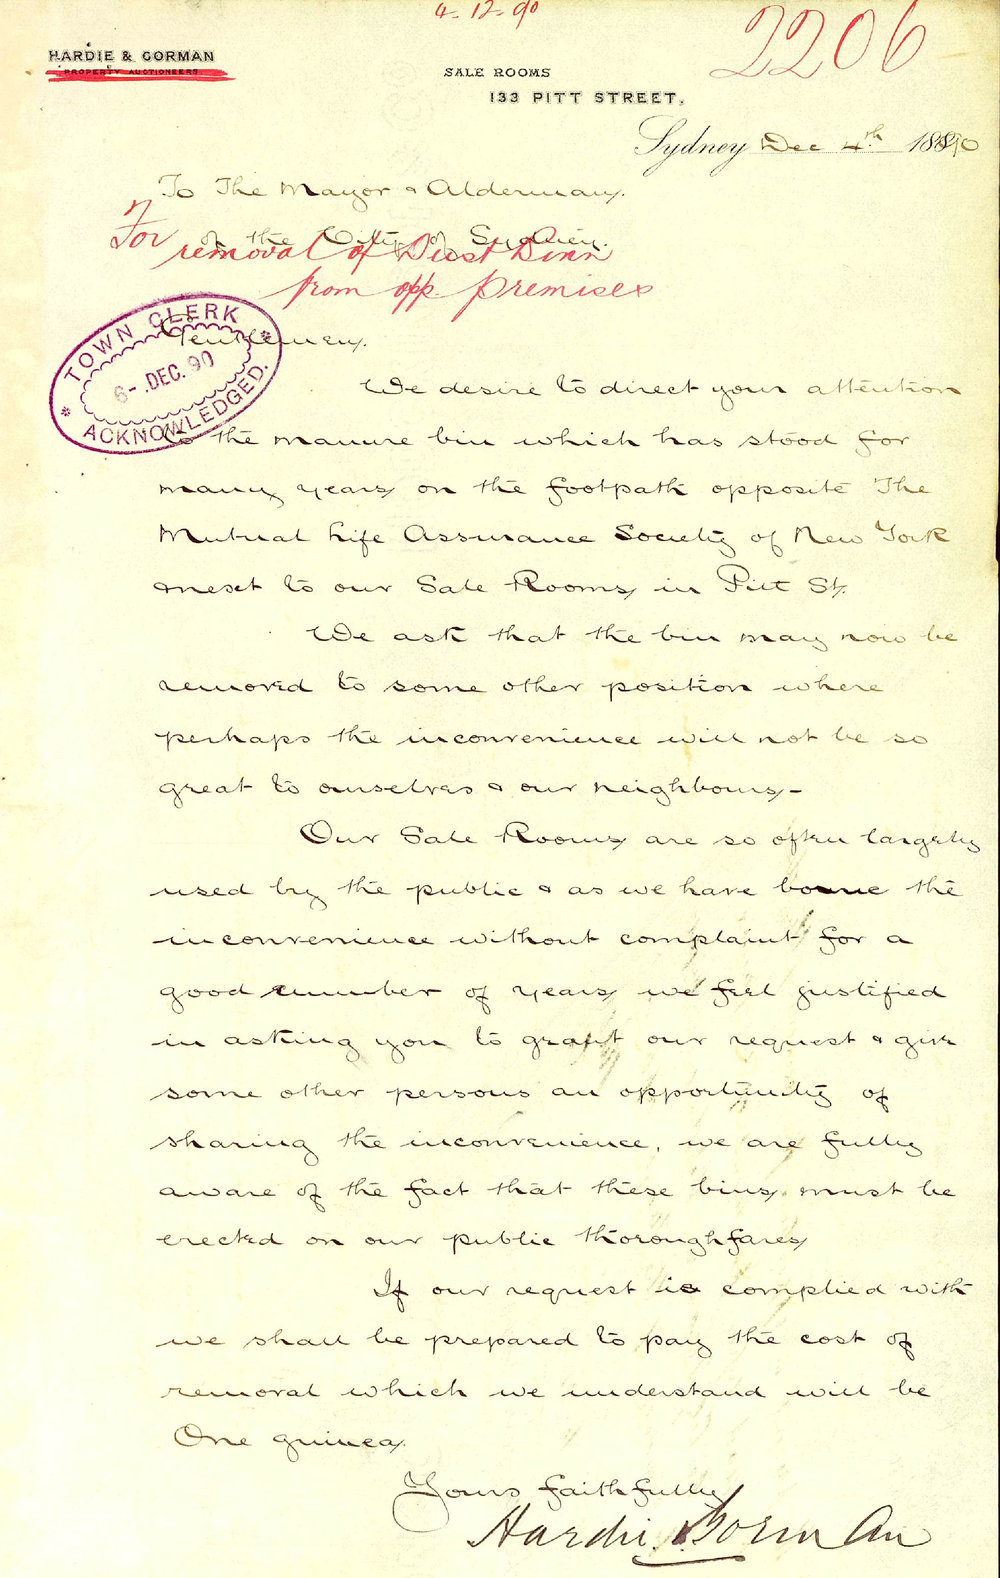 4-12-90
2206
HARDIE & GORMAN
PROPERTY AUCTIONEERS
SALE ROOMS
133 PITT STREET.
Sydney Dec 4th 1890
To The Mayor & Alderman.
of the City of Sydney.
For removal of Dust Binn
from opp. premises
TOWN CLERK
6-.DEC.90
ACKNOWLEDGED.
Gentlemen.
We desire to direct your attention
to the manure bin which has stood for
many years on the footpath opposite The
Mutual Life Assurance Society of New York
& next to our Sale Rooms in Pitt St.
We ask that the bin may now be
removed to some other position where
perhaps the inconvenience will not be so
great to ourselves & our neighbours -
Our Sale Rooms are so often largely
used by the public & as we have borne the
inconvenience without complaint for a
good number of years we feel justified
in asking you to grant our request & give
some other persons an opportunity of
sharing the inconvenience, we are fully
aware of the fact that these bins must be
erected on our public thoroughfares
If our request is complied with
we shall be prepared to pay the cost of
removal which we understand will be
One guinea.
Yours faithfully
Hardie & Gorman